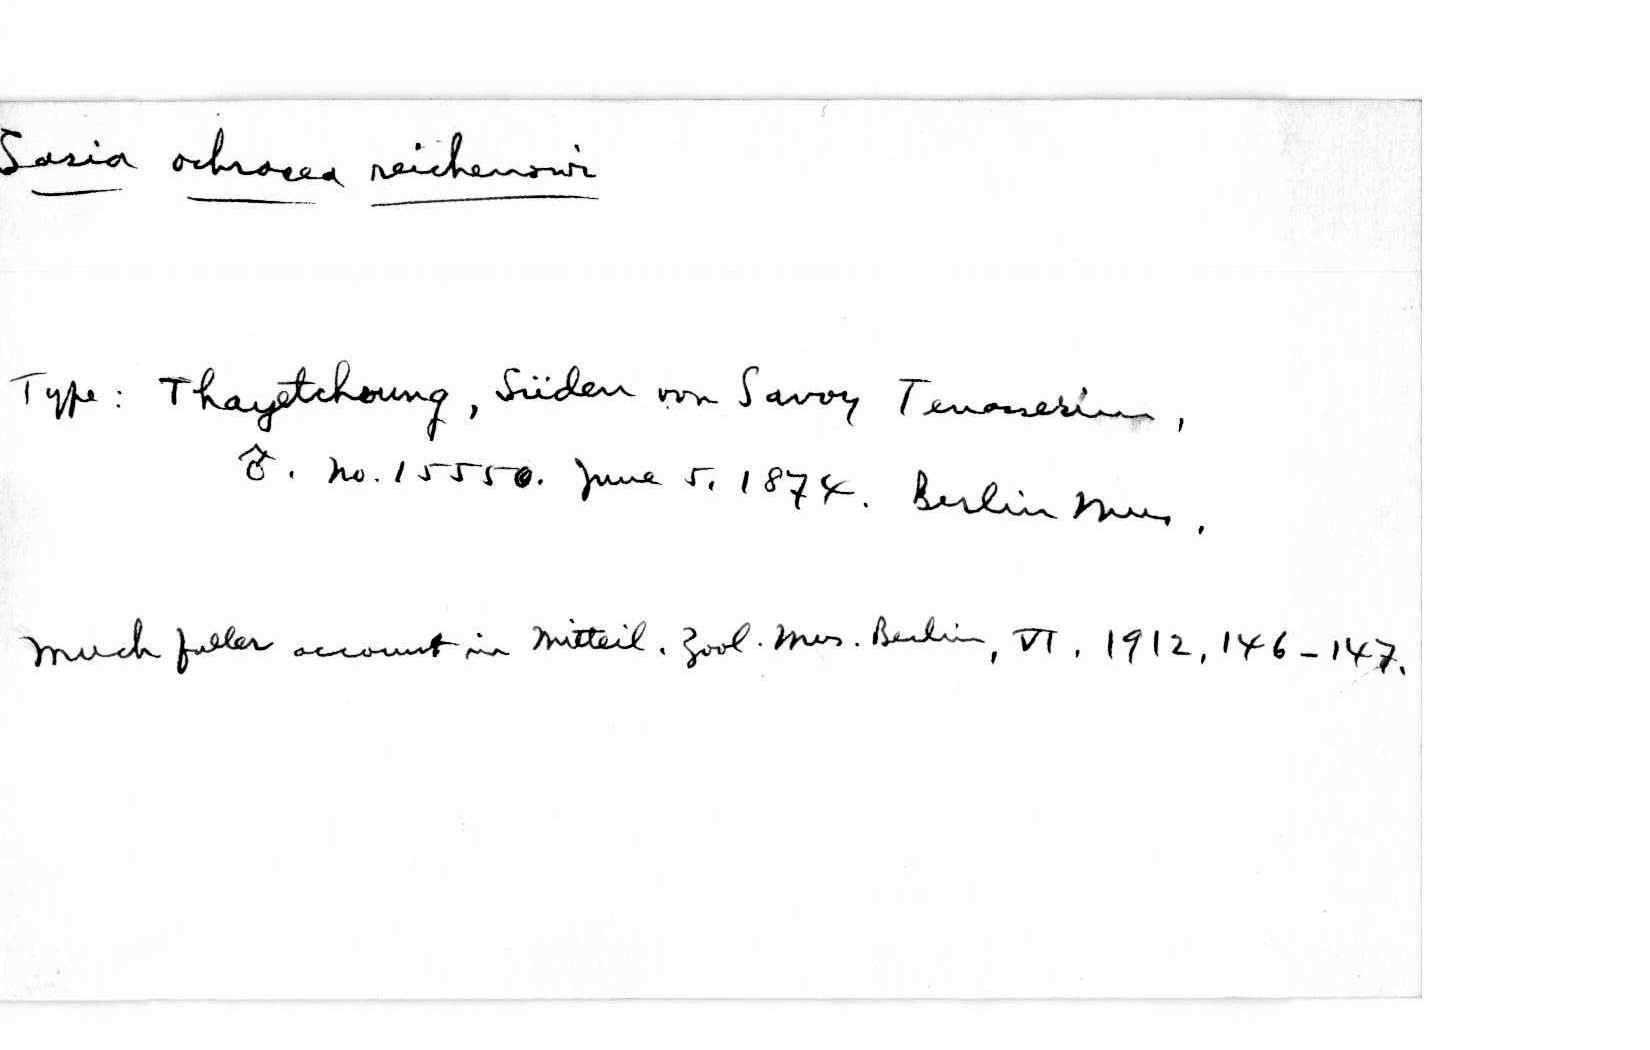 Sasia ochracea reichenowi
Type: Thayetchoung, Süden von Savoy Tenasserim,
♂. No. 15550. June 5, 1874. Berlin Mus.
Much fuller account in Mitteil. Zool. Mus. Berlin, VI, 1912, 146-147.